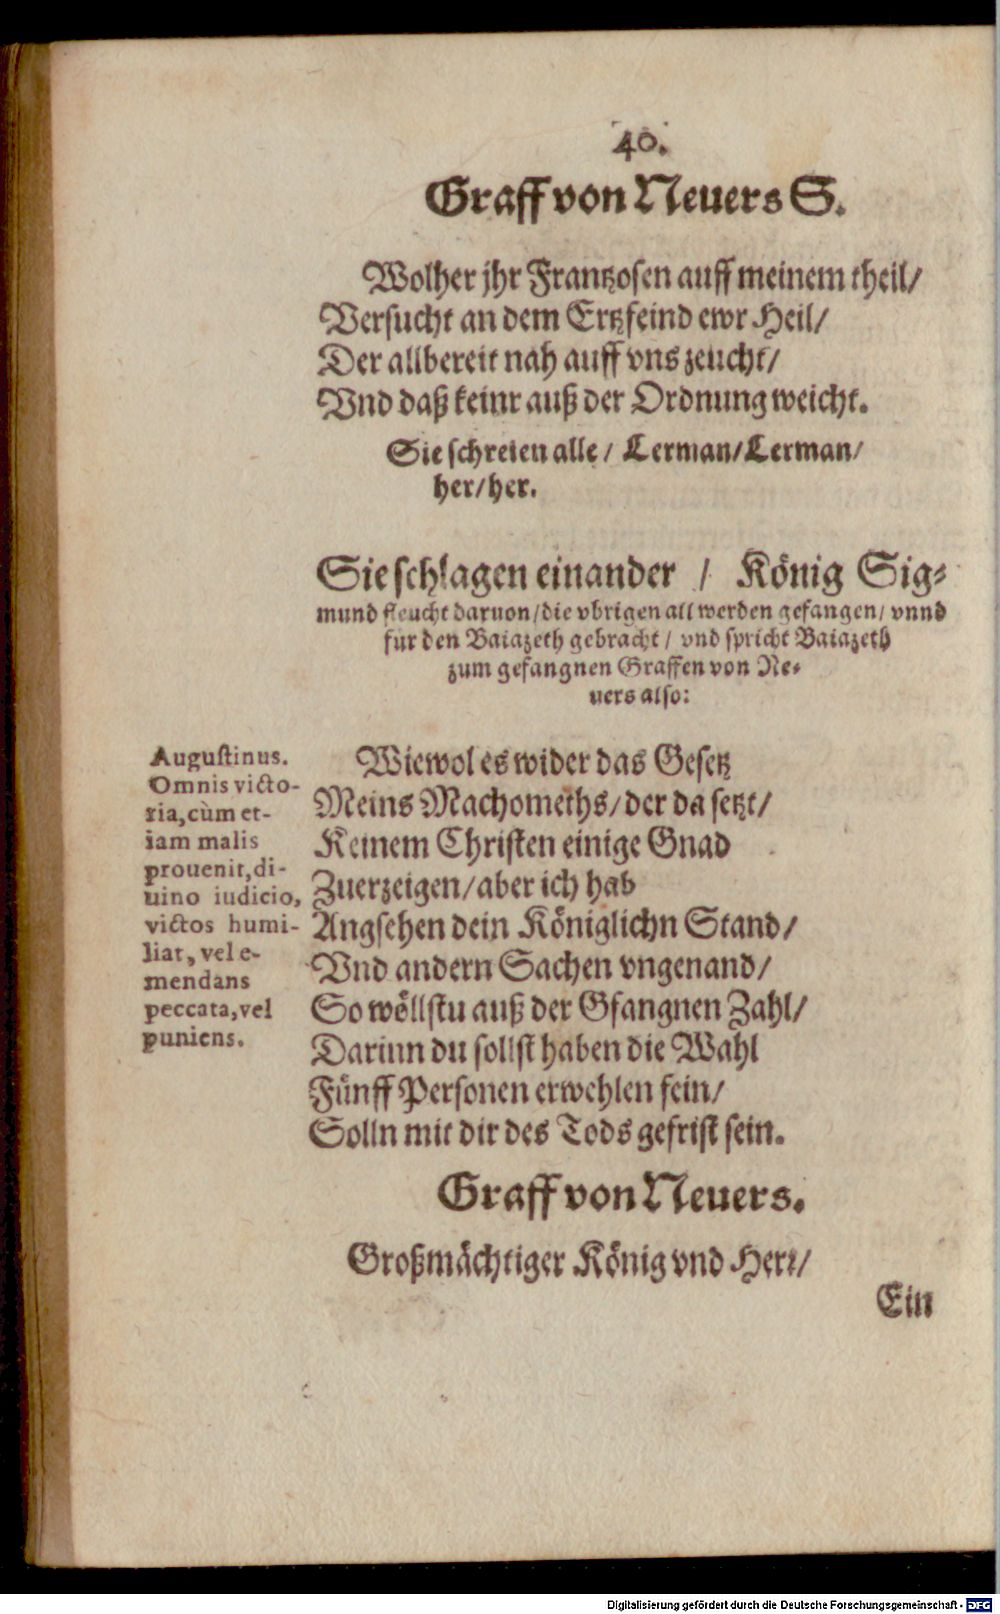 40.
Graff von Neuers S.
Wolher jhr Frantzosen auff meinem theil/
Versucht an dem Ertzfeind ewr Heil/
Der allbereit nah auff vns zeucht/
Vnd daß keinr auß der Ordnung weicht.
Sie schreien alle/ Lerman/ Lerman/
her/ her.
Sie schlagen einander / König Sig-
mund fleucht daruon/ die vbrigen all werden gefangen/ vnnd
für den Baiazeth gebracht/ vnd spricht Baiazeth
zum gefangnen Graffen von Ne-
uers also:
Augustinus.
Omnis victo-
ria, cùm et-
iam malis
prouenit, di-
uino iudicio,
victos humi-
liat, vel e-
mendans
peccata, vel
puniens.
Wiewol es wider das Gesetz
Meins Machomeths/ der da setzt/
Keinem Christen einige Gnad
Zuerzeigen/ aber ich hab
Angsehen dein Königlichn Stand/
Vnd andern Sachen vngenand/
So wöllstu auß der Gfangnen Zahl/
Darinn du sollst haben die Wahl
Fünff Personen erwehlen fein/
Solln mit dir des Tods gefrist sein.
Graff von Neuers.
Großmächtiger König vnd Herr/
Ein
Digitalisierung gefördert durch die Deutsche Forschungsgemeinschaft - DFG